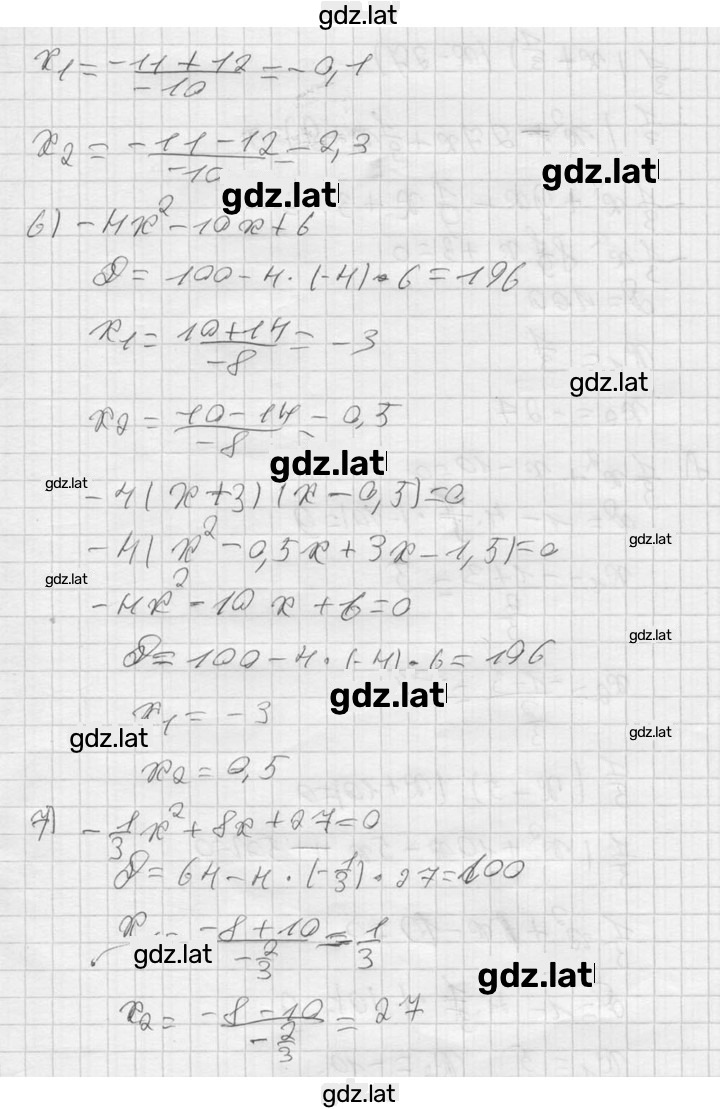 gdz.lat
x₁ = (-11+12)/(-10) = -0,1
x₂ = (-11-12)/(-10) = 2,3
gdz.lat
gdz.lat
6) -4x² - 10x + 6
D = 100 - 4 · (-4) · 6 = 196
x₁ = (10+14)/(-8) = -3
gdz.lat
x₂ = (10-14)/(-8) = 0,5
gdz.lat
gdz.lat
-4(x+3)(x-0,5)=0
gdz.lat
-4(x² - 0,5x + 3x - 1,5)=0
gdz.lat
-4x² - 10x + 6 = 0
gdz.lat
D = 100 - 4 · (-4) · 6 = 196
gdz.lat
x₁ = -3
gdz.lat
gdz.lat
x₂ = 0,5
7) -1/3 x² + 8x + 27 = 0
D = 64 - 4 · (-1/3) · 27 = 100
x = (-8+10)/(-2/3) = 1/3
gdz.lat
gdz.lat
x₂ = (-8-10)/(-2/3) = 27
gdz.lat